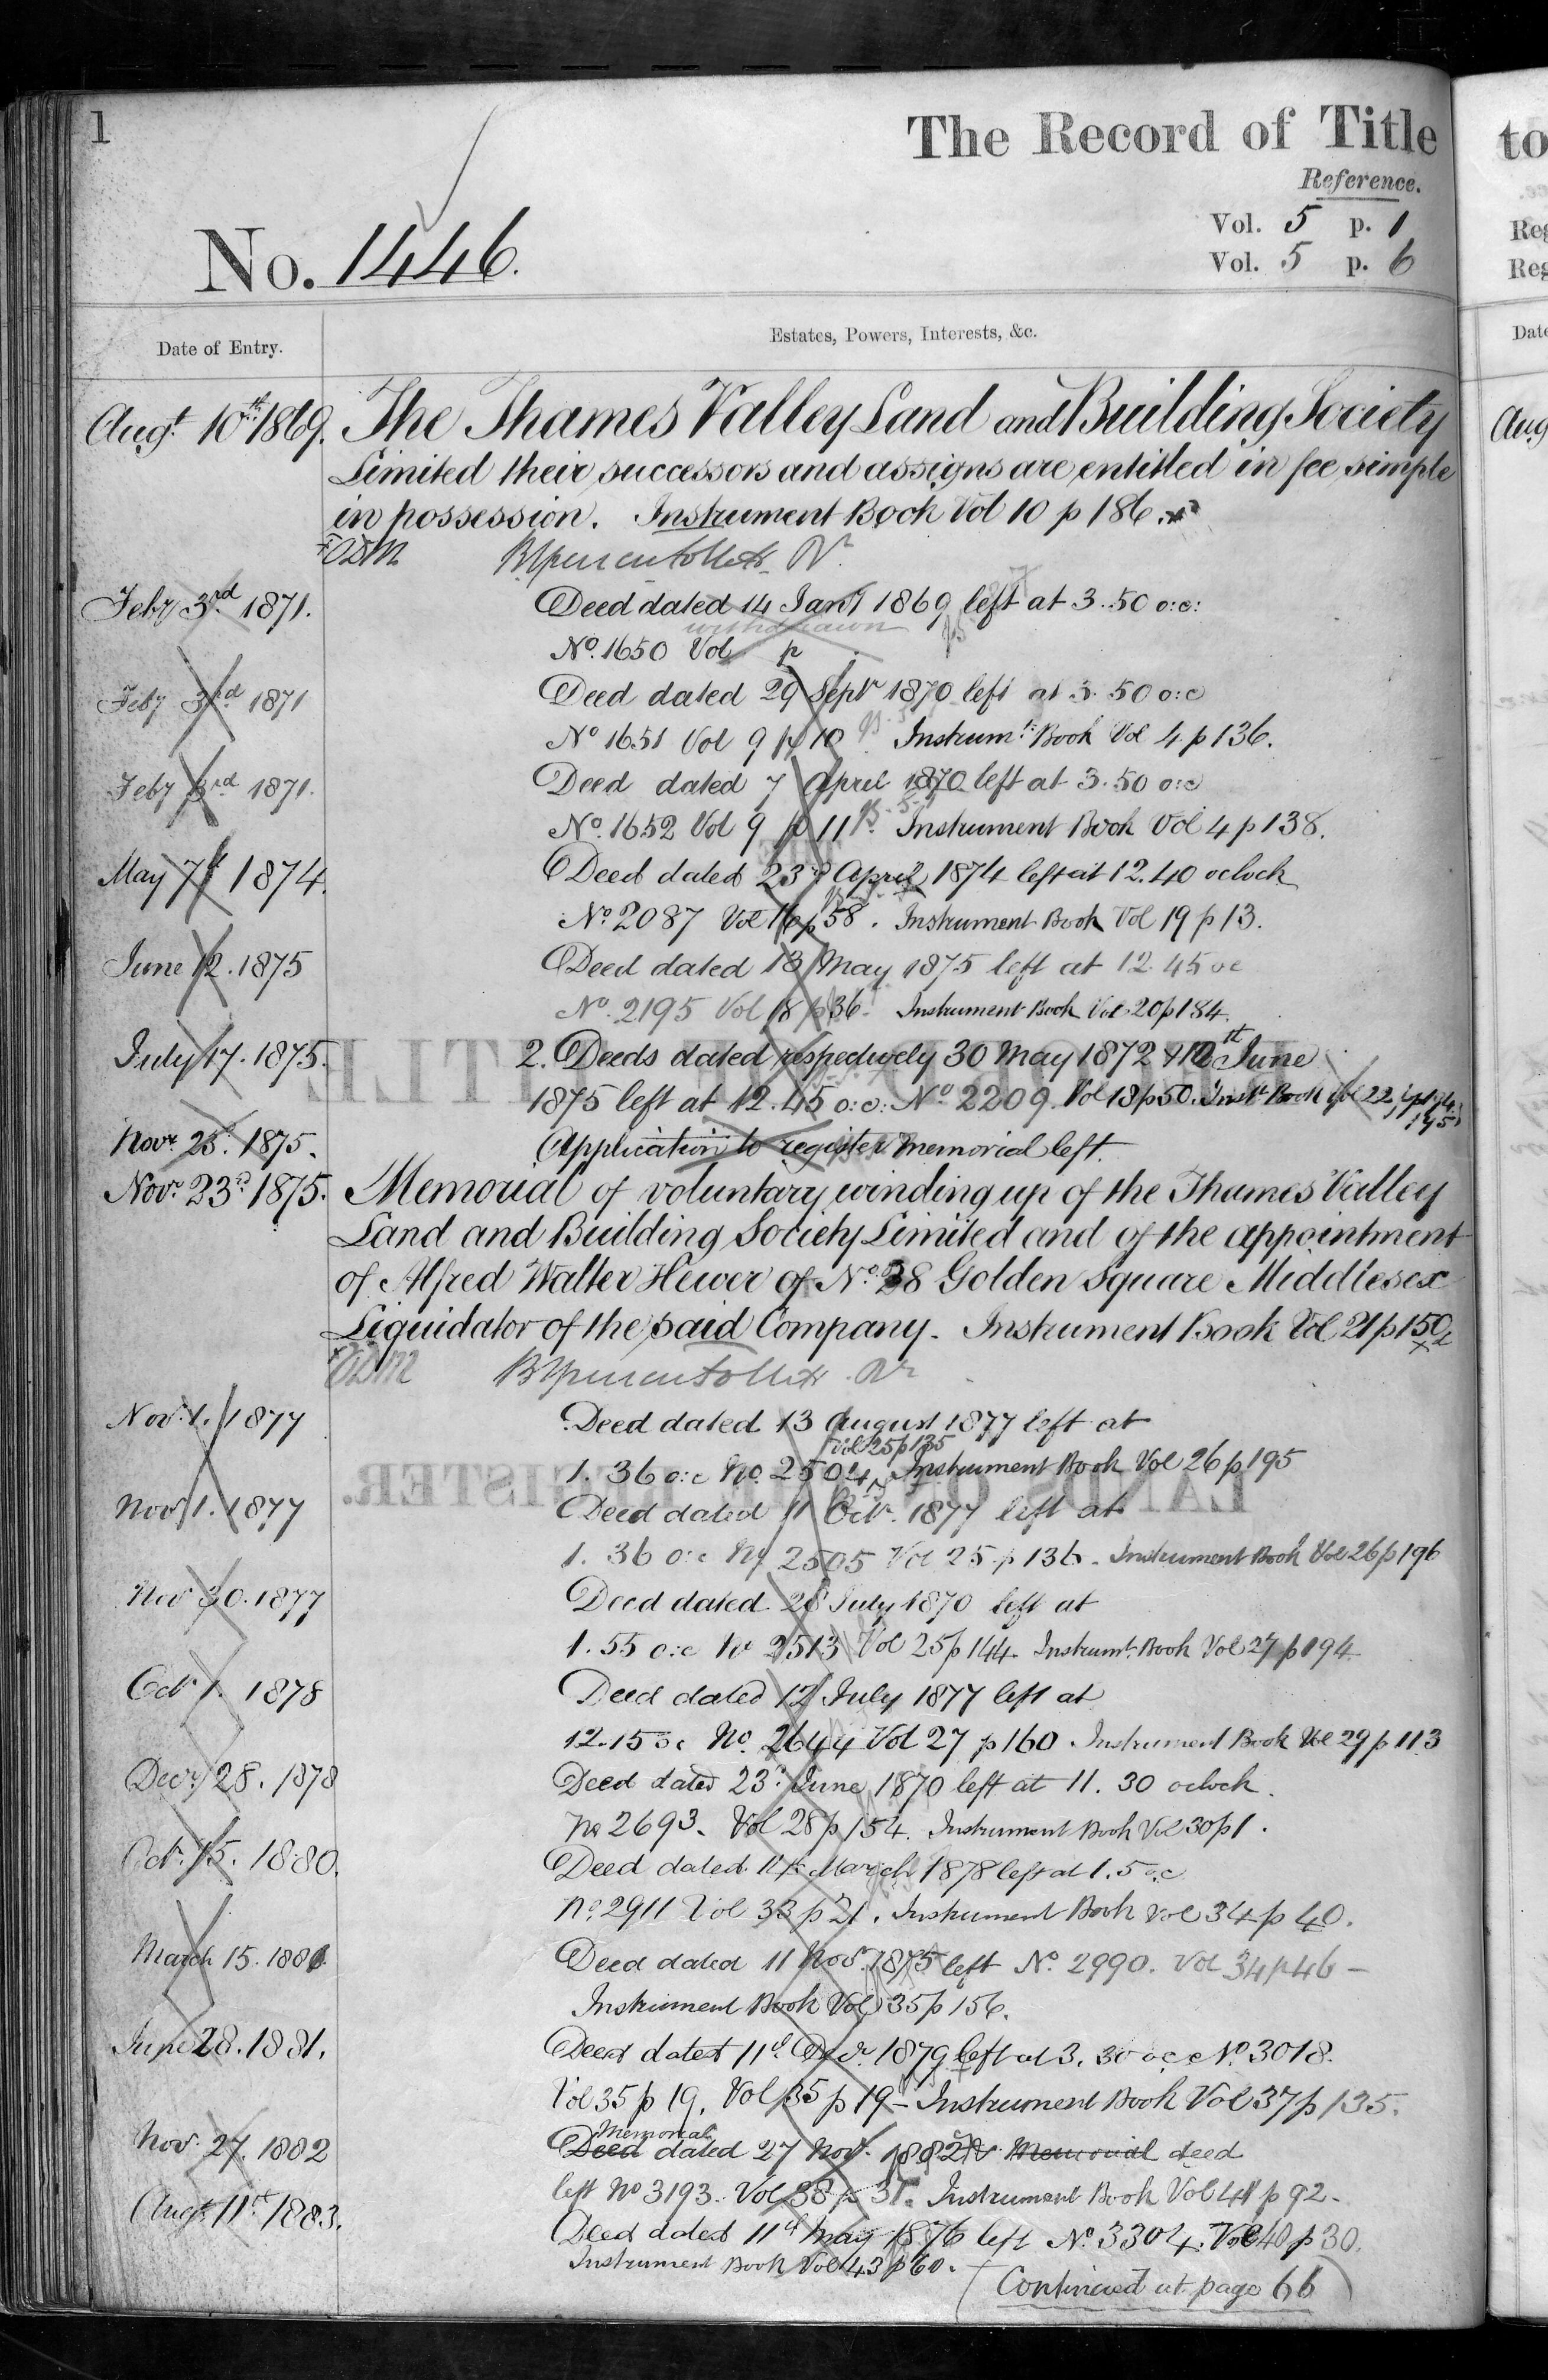 1
The Record of Title
Reference.
No. 1446.
Vol. 5 p. 1
Vol. 5 p. 6
Date of Entry.
Estates, Powers, Interests, &c.
Augt. 10th 1869. The Thames Valley Land and Building Society
Limited their successors and assigns are entitled in fee simple
in possession. Instrument Book Vol 10 p 186.
Feby 3rd 1871. Deed dated 14 Jany 1869 left at 3.50 o:c:
withdrawn
No. 1650 Vol p
Feby 3rd 1871 Deed dated 29 Septr 1870 left at 3.50 o:c
No 1651 Vol 9 p 10 Instrumt. Book Vol 4 p 136.
Feby 3rd 1871. Deed dated 7 April 1870 left at 3.50 o:c
No. 1652 Vol 9 p 11 Instrument Book Vol 4 p 138.
May 7th 1874. Deed dated 23rd April 1874 left at 12.40 oclock
No. 2087 Vol 16 p 58. Instrument Book Vol 19 p 13.
June 12. 1875 Deed dated 13 May 1875 left at 12.45 oc
No. 2195 Vol 18 p 36. Instrument Book Vol 20 p 184.
July 17. 1875. 2. Deeds dated respectively 30 May 1872 & 12th June
1875 left at 12.45 o:c: No 2209. Vol 18 p 50. Inst Book Vol 22
Novr. 23d. 1875. Application to register memorial left.
Novr. 23rd 1875. Memorial of voluntary winding up of the Thames Valley
Land and Building Society Limited and of the appointment
of Alfred Walter Hewer of No. 38 Golden Square Middlesex
Liquidator of the said Company. Instrument Book Vol 21 p 150
Nov. 1. 1877 Deed dated 13 August 1877 left at
Vol 25 p 135
1. 36 o:c No. 2504 Instrument Book Vol 26 p 195
Nov. 1. 1877 Deed dated 11 Octr. 1877 left at
1. 36 o:c No 2505 Vol 25 p 136. Instrument Book Vol 26 p 196
Nov 30. 1877 Deed dated 28 July 1870 left at
1. 55 o:c No 2513 Vol 25 p 144. Instrumt. Book Vol 27 p 194
Octr 1. 1878 Deed dated 12 July 1877 left at
12.15 oc No. 2644 Vol 27 p 160. Instrument Book Vol 29 p 113
Decr 28. 1878 Deed dated 23d. June 1870 left at 11. 30 oclock.
No 2693. Vol 28 p 154. Instrument Book Vol 30 p 1.
Oct. 15. 1880. Deed dated 11th March 1878 left at 1.5 o.c
No. 2911 Vol 33 p 21. Instrument Book Vol 34 p 40.
March 15. 1881. Deed dated 11 Nov. 1875 left No. 2990. Vol 34 p 46 –
Instrument Book Vol 35 p 156.
June 28. 1881. Deed dated 11th Decr. 1879 left at 3. 30 oc No. 3018.
Vol 35 p 19, Vol 35 p 19 – Instrument Book Vol 37 p 135.
Memorial
Nov. 27. 1882 Deed dated 27 Nov. 1882 Memorial deed
left No 3193. Vol 38 p 31. Instrument Book Vol 41 p 92 –
Augt. 11th 1883. Deed dated 11th May 1876 left No. 3304. Vol 40 p 30.
Instrument Book Vol 43 p 60.
(Continued at page 66)
to
Reg
Reg
Date
Aug